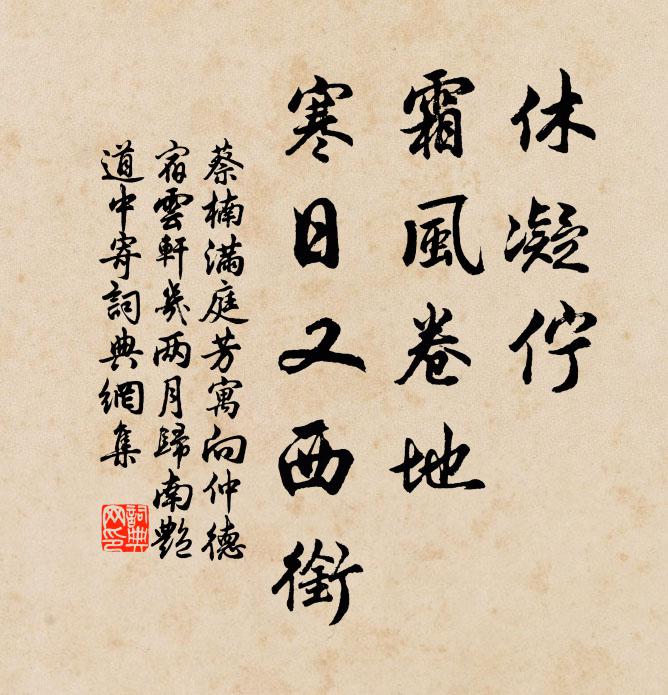 休凝佇
霜風卷地
寒日又西銜
蔡楠滿庭芳寓向仲德
宿雲軒幾兩月歸南豔
道中寄詞典網集
詞典
网印